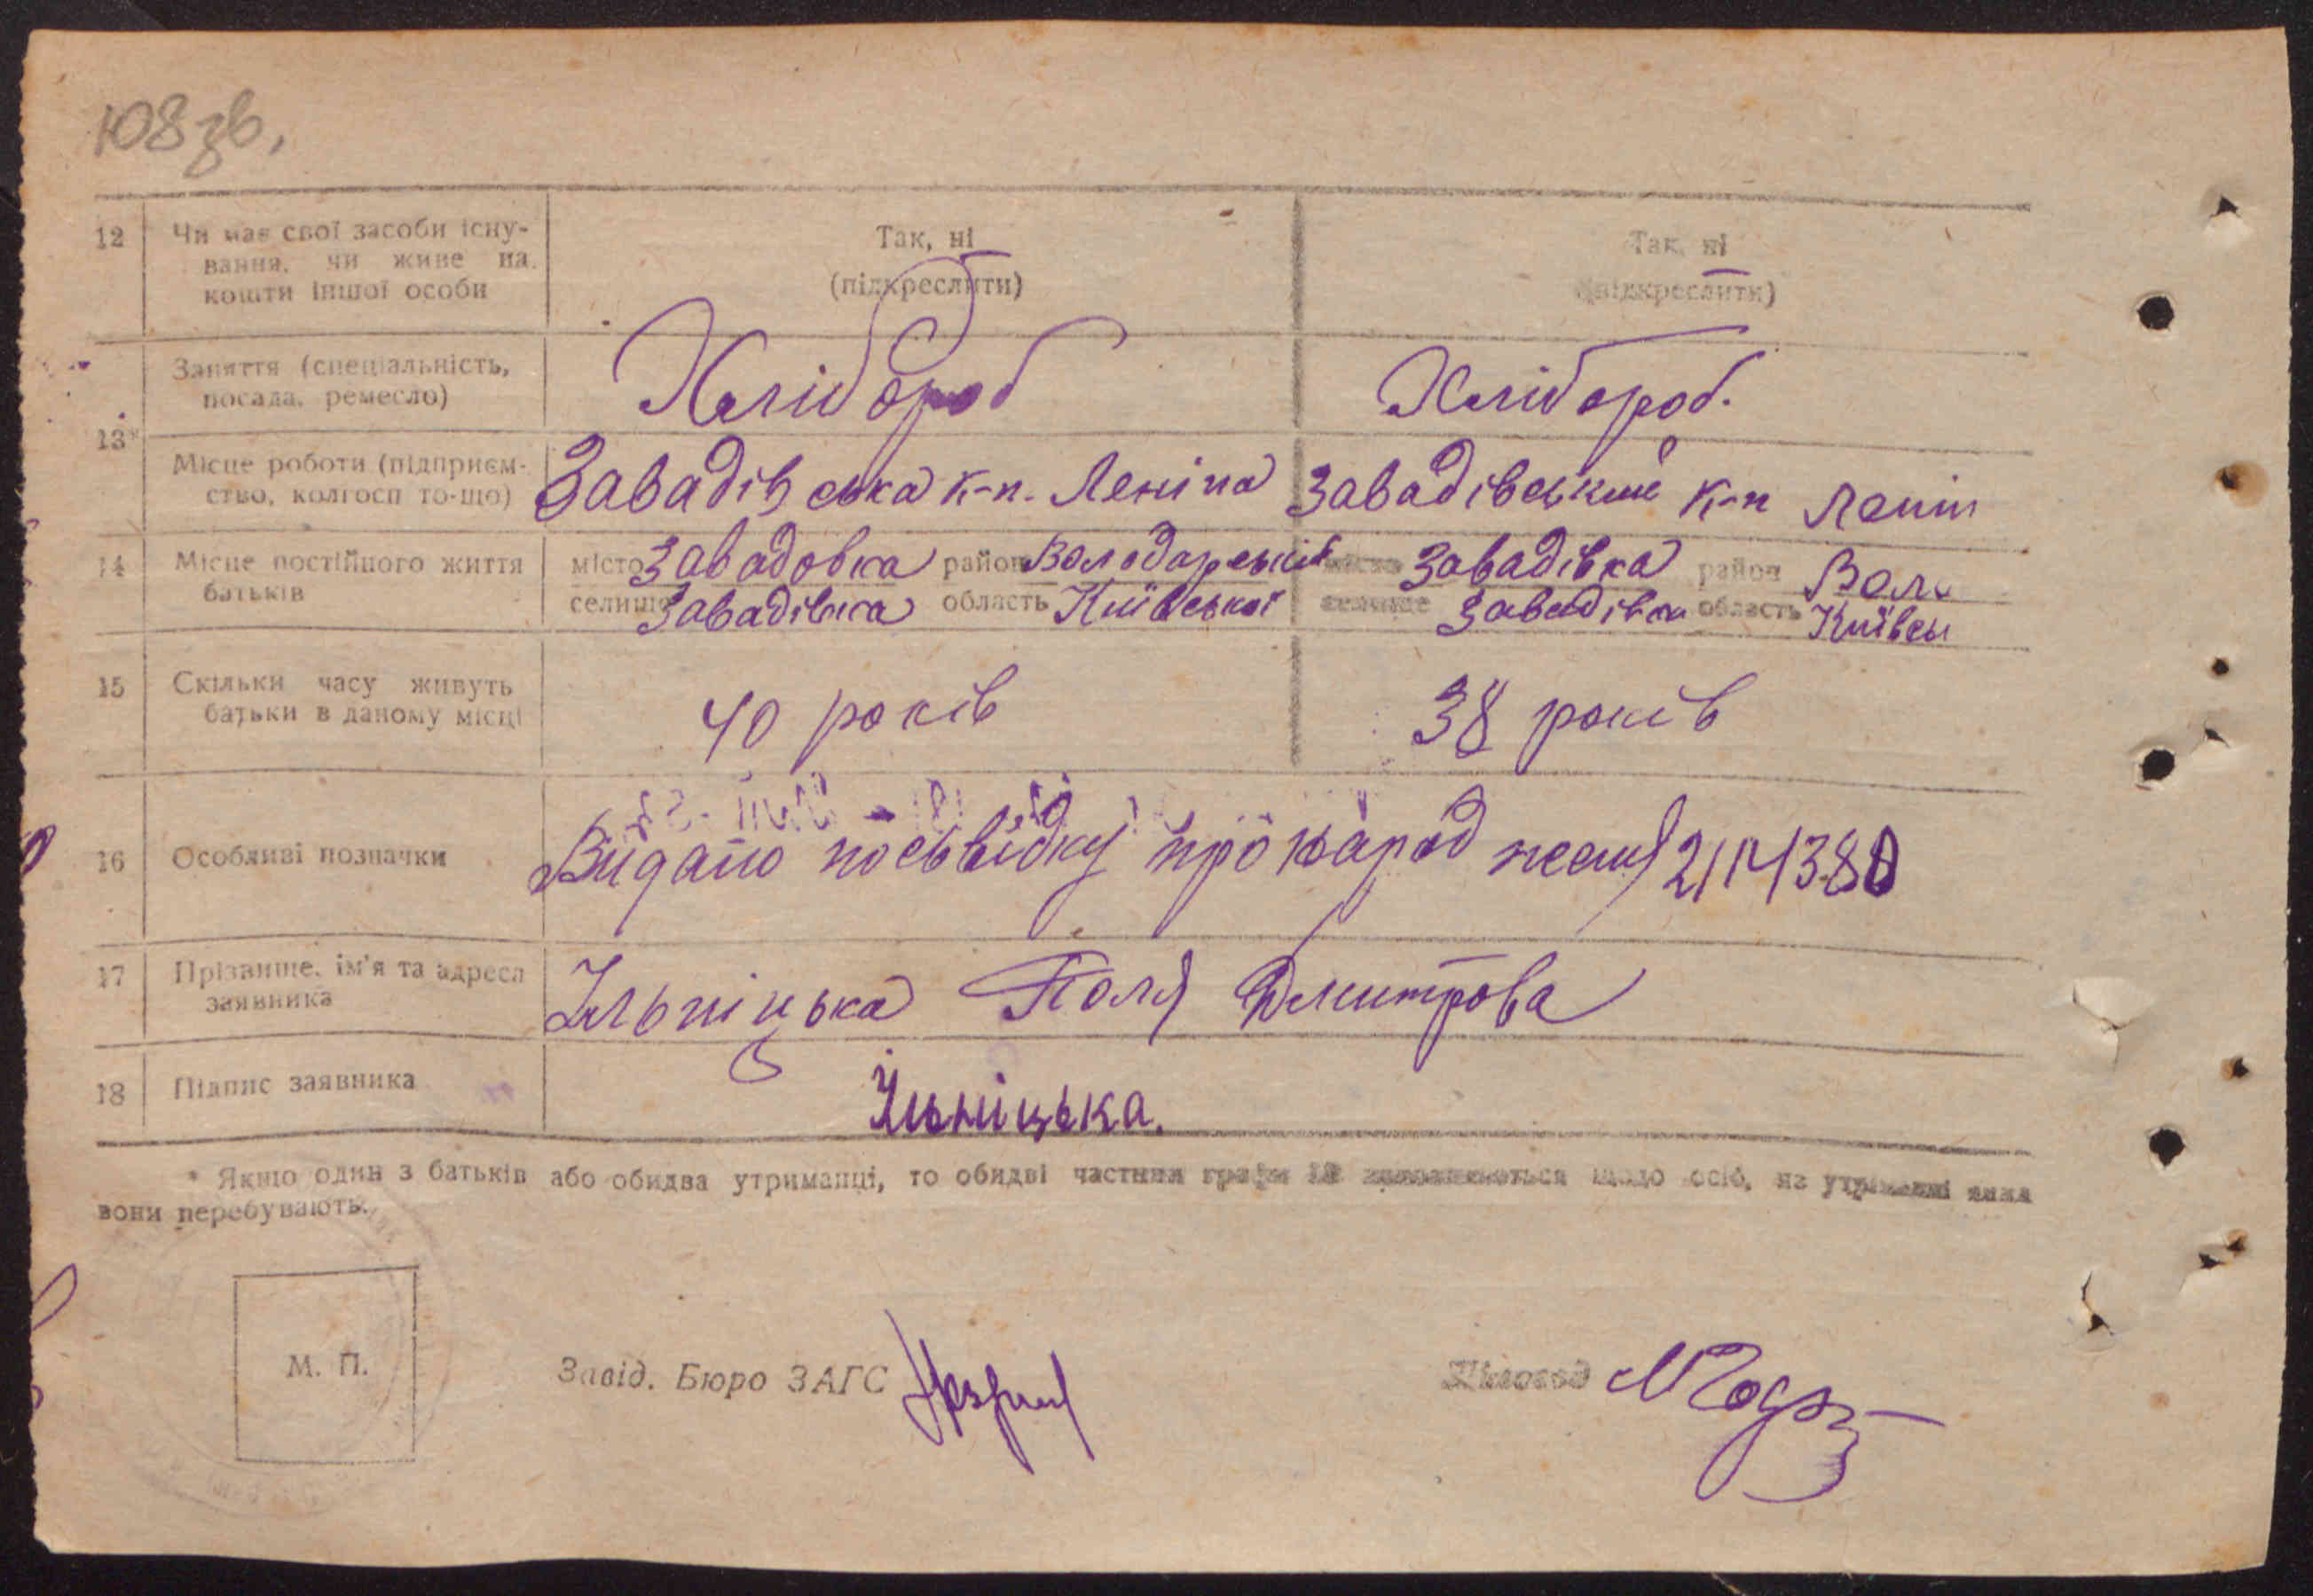 108зв.
12 Чи має свої засоби існу-
вання, чи живе на
кошти іншої особи
Так, ні
(підкреслити)
Так, ні
(підкреслити)
13*
Заняття (спеціальність,
посада, ремесло)
Хлібороб
Хлібороб.
Місце роботи (підприєм-
ство, колгосп то-що)
Завадівська к-п. Леніна
Завадівський к-п Ленін
14 Місце постійного життя
батьків
місто Завадовка район Володарський
селище Завадівка область Київської
місто Завадівка район Воло
селище Завадівка область Київсь
15 Скільки часу живуть
батьки в даному місці
40 років
38 років
16 Особливі позначки
Видано посьвідку про народ
17 Прізвище, ім'я та адреса
заявника
Ільніцька Поля Дмитрова
18 Підпис заявника
Ільніцька.
* Якщо один з батьків або обидва утриманці, то обидві частини графи 13 щодо осіб, на утриманні яких
вони перебувають.
М. П.
Завід. Бюро ЗАГС